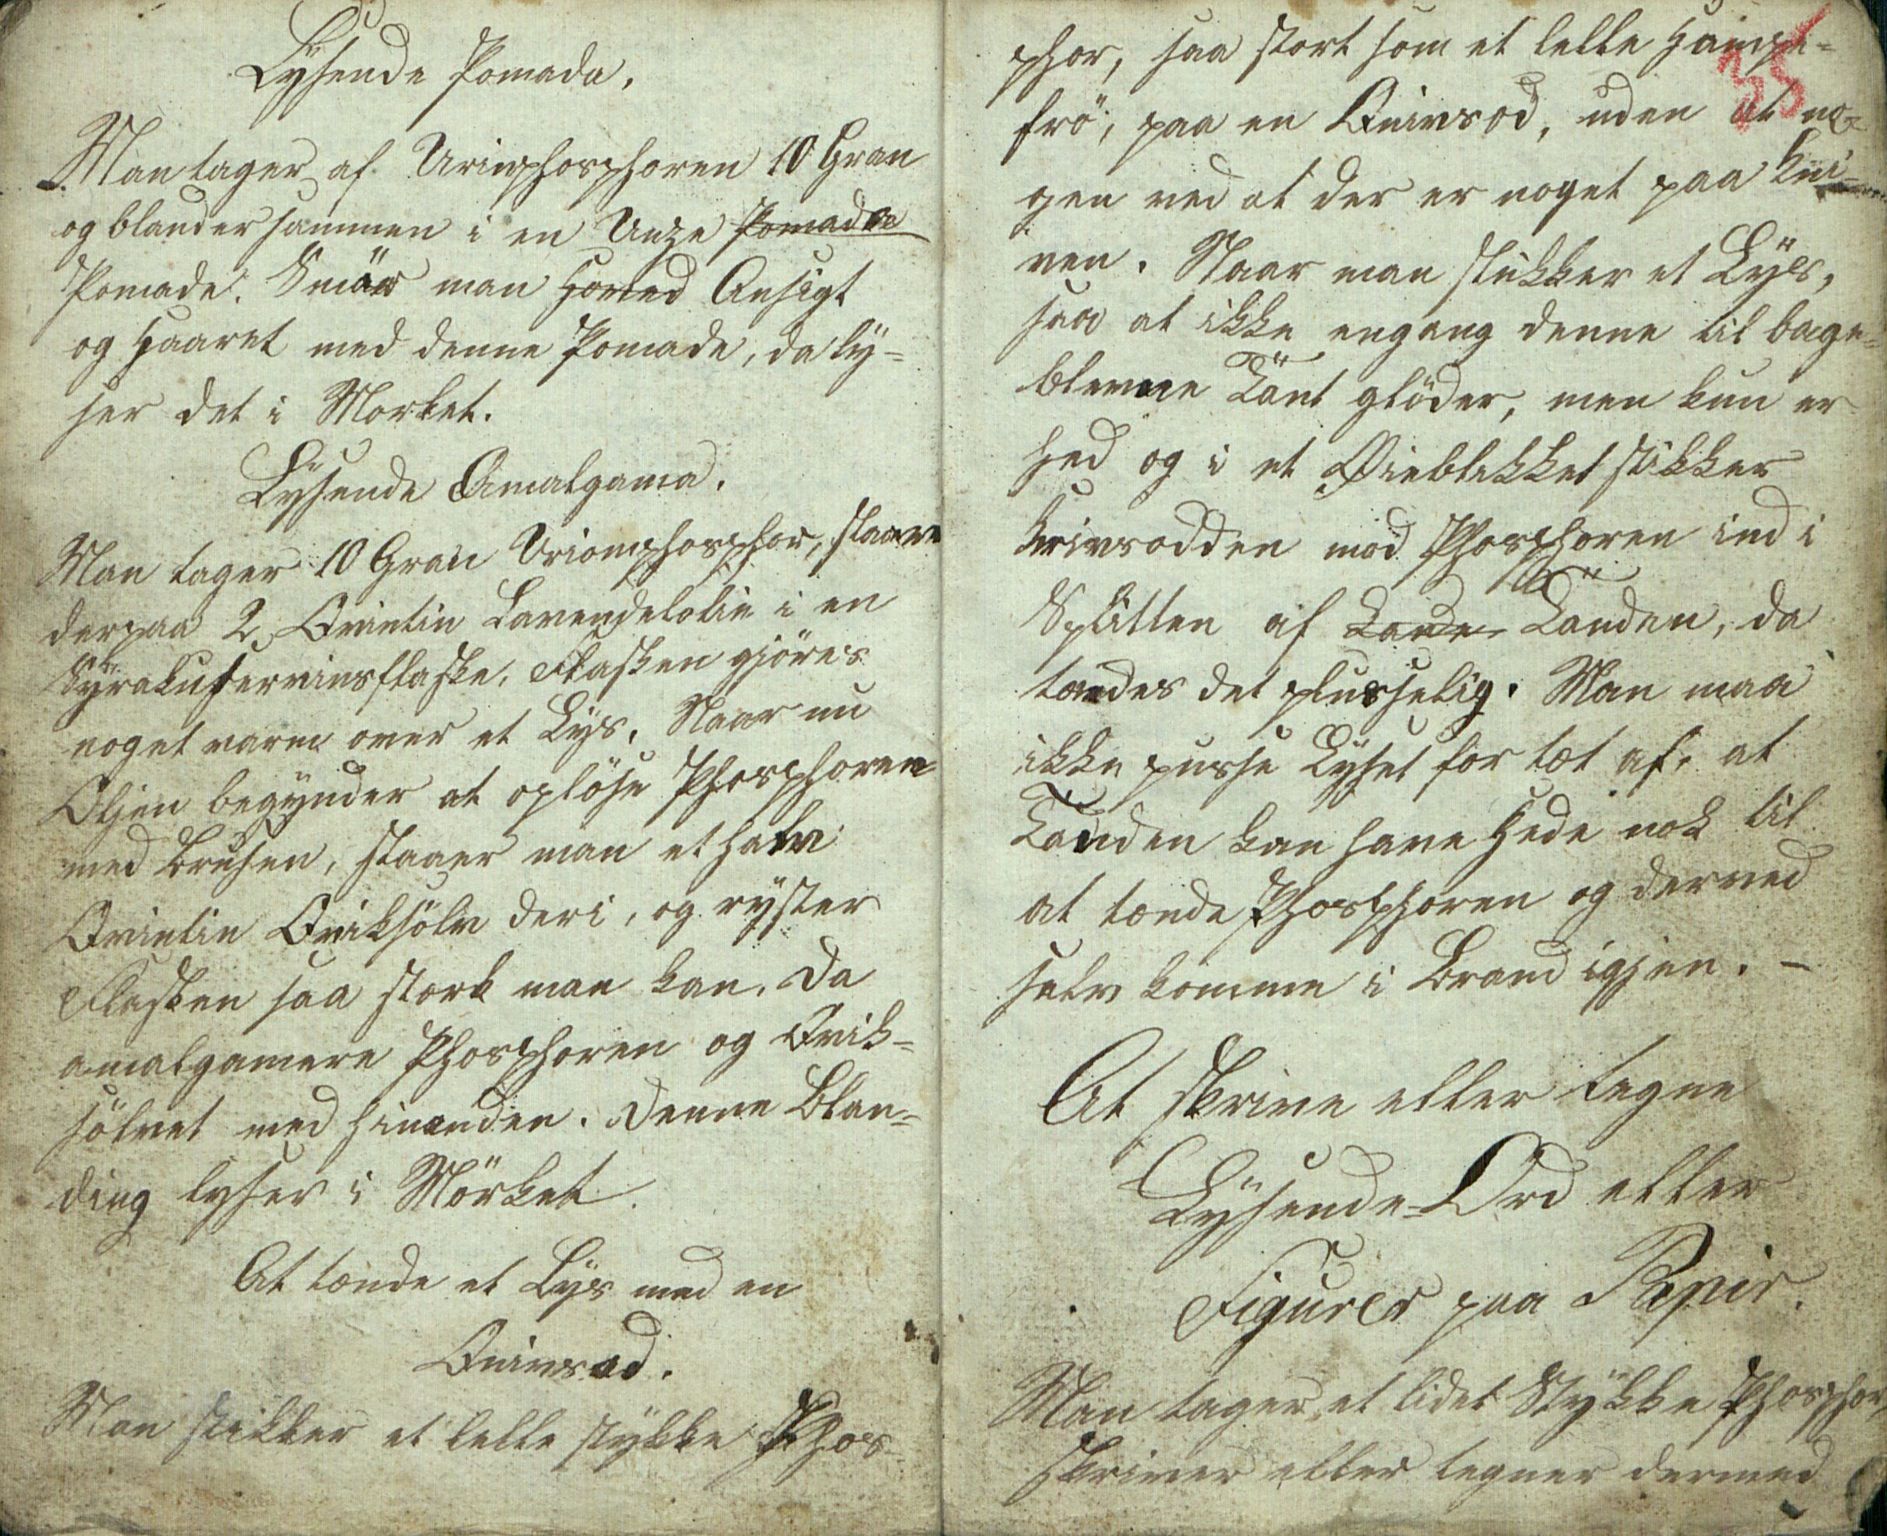 Lÿsende Pomada.
Man tager af Urinphosphoren 10 Gran
og blander sammen i en Unze Pomada
Pomade. Smör man Hoved Ansigt
og Haaret med denne Pomade, da lÿ-
ser det i Morket.
Lÿsende Amalgama.
Man tager 10 Gran Urionphosphor, slaaer
derpaa 2 Qvintin Lavendelolie i en
Sÿrakuservinsflaske, Flasken gjöres
noget varm over et Lÿs. Naar nu
Oljen begÿnder at oplöse Phosphoren
med Brusen, slaaer man et halv
Qvintin Qviksölv deri, og rÿster
Flasken saa stork man kan. Da
amalgamere Phosphoren og Qvik-
sölvet med hinanden. Denne Blan-
ding lyser i Mörket.
At tænde et Lÿs med en
Knivsod.
Man stikker et lelle stÿkke Phos-
phor, saa stort som et lelle Hampe-
frö, paa en Knivsod, uden at no-
gen ved at der er noget paa Kni-
ven. Naar man slukker et Lÿs,
saa at ikke engang denne til bage-
blevne Tant glöder, men kun er
hed og i et Øieblikket stikker
Knivsodden mod Phosphoren ind i
Splitten af Tanden, da
tændes det plusselig. Man maa
ikke pusse Lÿset for tæt af, at
Tanden kan have Hede nok til
at tænde Phosphoren og derved
selv komme i Brand igjen. –
At skrive eller tegne
Lÿsende-Ord eller
Figurer paa Papir.
Man tager et lidet Stÿkke Phosphor,
skriver eller tegner dermed
35